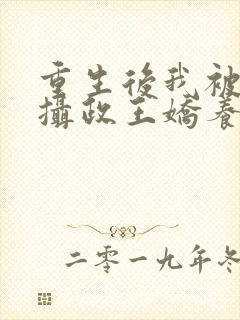 重生後我被
攝政王嬌養
二零一九年冬